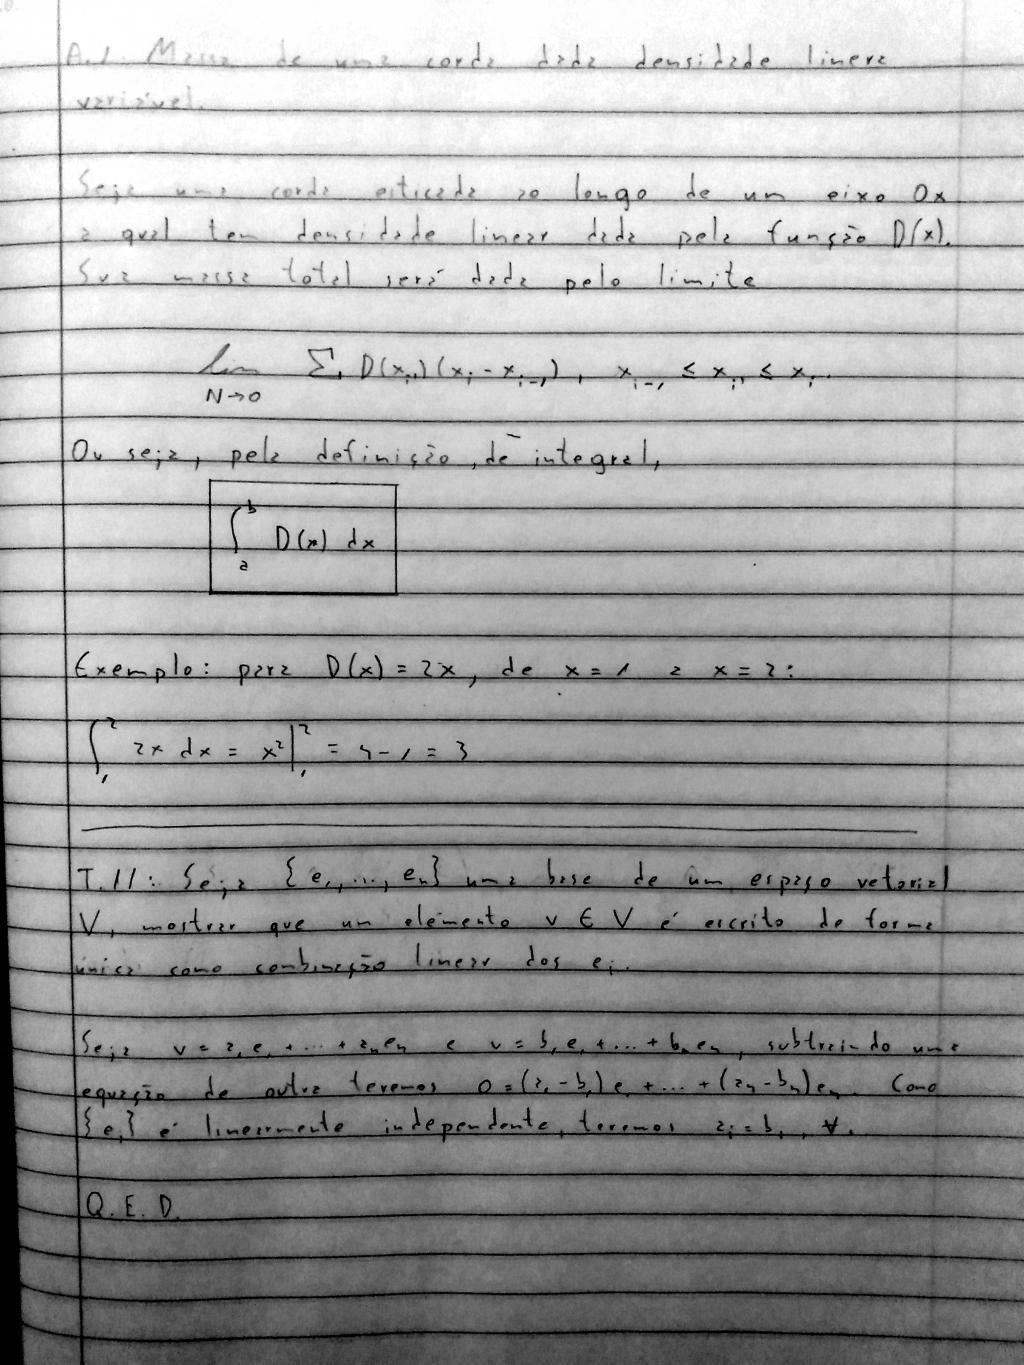 A.1. Massa de uma corda dada densidade linera
variável.
Seja uma corda esticada ao longo de um eixo Ox
a qual tem densidade linear dada pela função D(x).
Sua massa total será dada pelo limite
lim Σ D(xᵢ,)(xᵢ - xᵢ₋₁), xᵢ₋₁ ≤ xᵢ, ≤ xᵢ.
N→0
Ou seja, pela definição, de integral,
∫ₐᵇ D(x) dx
Exemplo: para D(x) = 2x, de x = 1 a x = 2:
∫₁² 2x dx = x²|₁² = 4 - 1 = 3
T.11: Seja {e₁, ..., eₙ} uma base de um espaço vetorial
V, mostrar que um elemento v ∈ V é escrito de forma
única como combinação linear dos eᵢ.
Seja v = a₁e₁ + ... + aₙeₙ e v = b₁e₁ + ... + bₙeₙ, subtraindo uma
equação de outra teremos 0 = (a₁ - b₁)e₁ + ... + (aₙ - bₙ)eₙ. Como
{eᵢ} é linearmente independente, teremos aᵢ = bᵢ, ∀ᵢ
Q.E.D.